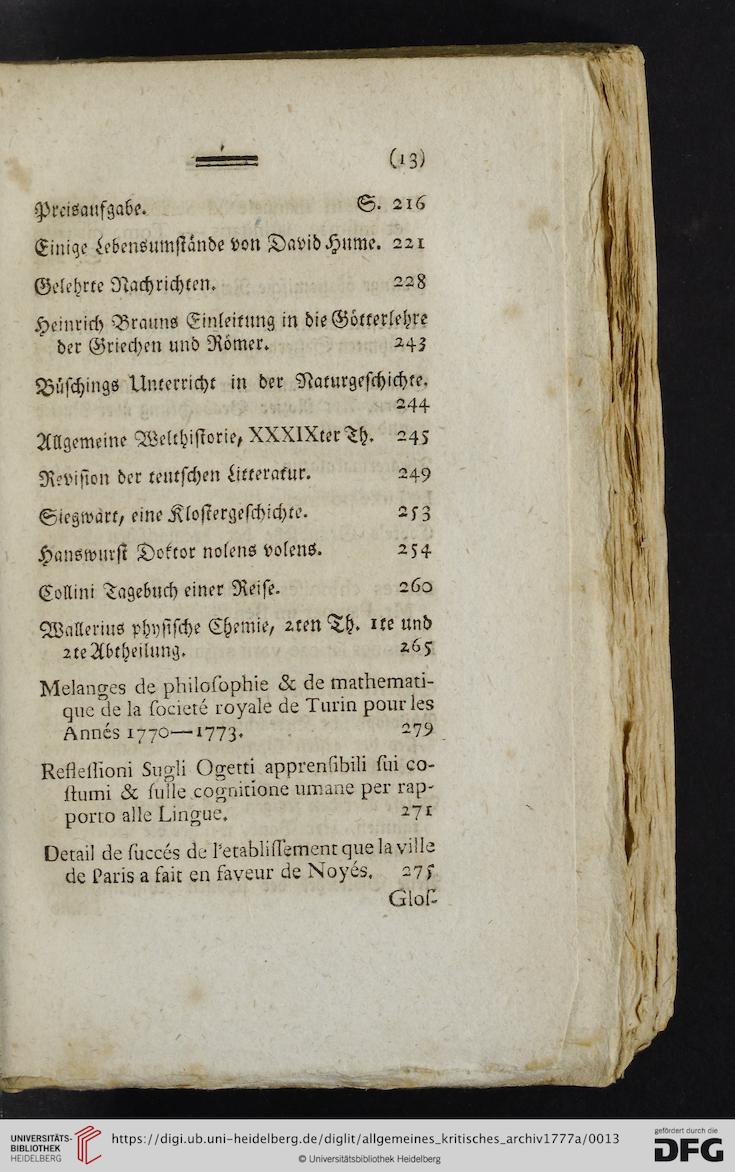 (13)
Preisaufgabe. S. 216
Einige Lebensumstånde von David Hume. 221
Gelehrte Nachrichten. 228
Heinrich Brauns Einleitung in die Götterlehre
der Griechen und Römer. 243
Büschings Unterricht in der Naturgeschichte.
244
Allgemeine Welthistorie, XXXIXter Th. 245
Revision der teutschen Litteratur. 249
Siegwart, eine Klostergeschichte. 253
Hanswurst Doktor nolens volens. 254
Collini Tagebuch einer Reise. 260
Wallerius physische Chemie, 2ten Th. 1te und
2te Abtheilung. 265
Melanges de philoſophie & de mathemati-
que de la ſocieté royale de Turin pour les
Annés 1770—1773. 279
Refleſſioni Sugli Ogetti apprenſibili ſui co-
ſtumi & ſulle cognitione umane per rap-
porto alle Lingue. 271
Detail de ſuccés de l'etabliſſement que la ville
de Paris a fait en faveur de Noyés. 275
Gloſ-
UNIVERSITÄTS-
BIBLIOTHEK
HEIDELBERG
https://digi.ub.uni-heidelberg.de/diglit/allgemeines_kritisches_archiv1777a/0013
© Universitätsbibliothek Heidelberg
gefördert durch die
DFG